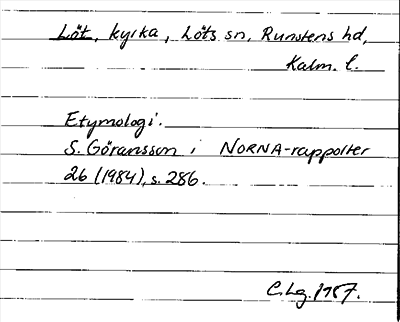 Löt, kyrka, Löts sn, Runstens hd,
Kalm. l.
Etymologi.
S. Göransson i NORNA-rapporter
26 (1984), s. 286.
C. Lg. 1987.